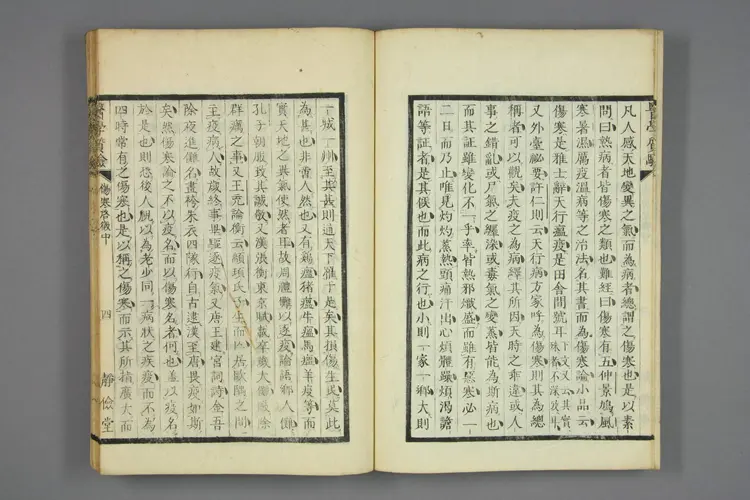 凡人感天地變異之氣而為病者總謂之傷寒也是以素
問曰熱病者皆傷寒之類也難經曰傷寒有五仲景鳩風
寒暑濕厲疫溫病等之治法名其書而為傷寒論小品云
傷寒是雅士辭天行瘟疫是田舍間號耳
又外臺祕要許仁則云天行病方家呼為傷寒則其為總
稱者可以觀矣夫疫之為病繹其所因天時之乖違或人
事之錯亂或尸氣之纏染或毒氣之變蒸皆能為斯病也
而其証雖變化不一乎率皆熱邪熾盛而雖有惡寒必一
二日而乃止唯見灼灼蒸熱頭痛汗出心煩體躁煩渴譫
語等証者是其候也而此病之行也小則一家一鄉大則
一城一州至其甚則通天下雅于是矣其損傷生或莫此
為甚也非啻人然也又有鷄瘟猪瘟牛瘟馬瘟羊疫等而
實天地之異氣使然者耳故周禮難以逐疫論語鄉人儺
孔子朝服致其誠敬又漢張衡東京賦卒歲大儺毆除
群癘之事又王充論衡云顓頊氏子生而居歐隅之間
主疫病人故歲終事畢驅逐疫氣又唐王建宮詞詩金吾
除夜進儺名畫袴朱衣四隊行自古逮漢至唐畏疫如斯
矣然傷寒論之不以疫名而以傷寒名者何也蓋以疫名
於是也則恐後人覩以為老少同一病狀之疾疫而不為
四時常有之傷寒也是以稱之傷寒而示其所指廣大而
傷寒啓微中
四
靜儉堂